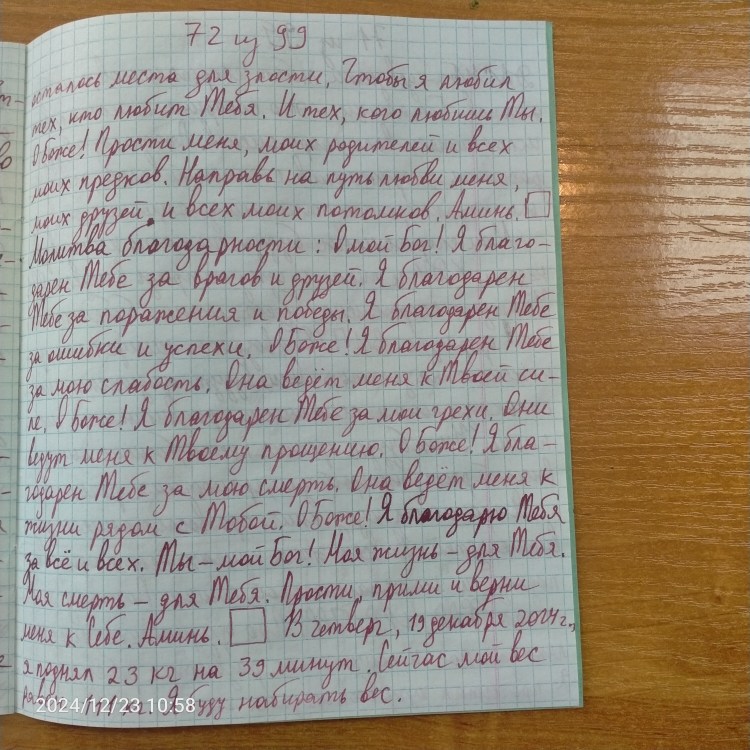 72 из 99
осталось места для злости. Чтобы я любил
тех, кто любит Тебя. И тех, кого любишь Ты.
О Боже! Прости меня, моих родителей и всех
моих предков. Направь на путь любви меня,
моих друзей и всех моих потомков. Аминь.
Молитва благодарности: О мой Бог! Я благо-
дарен Тебе за врагов и друзей. Я благодарен
Тебе за поражения и победы. Я благодарен Тебе
за ошибки и успехи. О Боже! Я благодарен Тебе
за мою слабость. Она ведёт меня к Твоей си-
ле. О Боже! Я благодарен Тебе за мои грехи. Они
ведут меня к Твоему прощению. О Боже! Я бла-
годарен Тебе за мою смерть. Она ведёт меня к
жизни рядом с Тобой. О Боже! Я благодарю Тебя
за всё и всех. Ты – мой Бог! Моя жизнь – для Тебя.
Моя смерть – для Тебя. Прости, прими и верни
меня к Себе. Аминь. В четверг, 19 декабря 2024 г.,
я поднял 23 кг на 39 минут. Сейчас мой вес
Я буду набирать вес.
2024/12/23 10:58